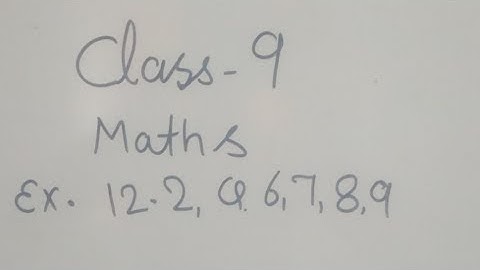 Class-9
Maths
Ex. 12.2, Q. 6,7,8,9